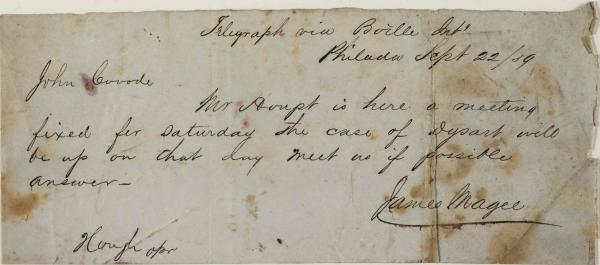 Telegraph via Bville Int'
Philada Sept 22/59
John Covode
Mr Houpt is here a meeting
fixed for Saturday the case of Dysart will
be up on that day meet us if possible
answer—
James Magee
Hough opr